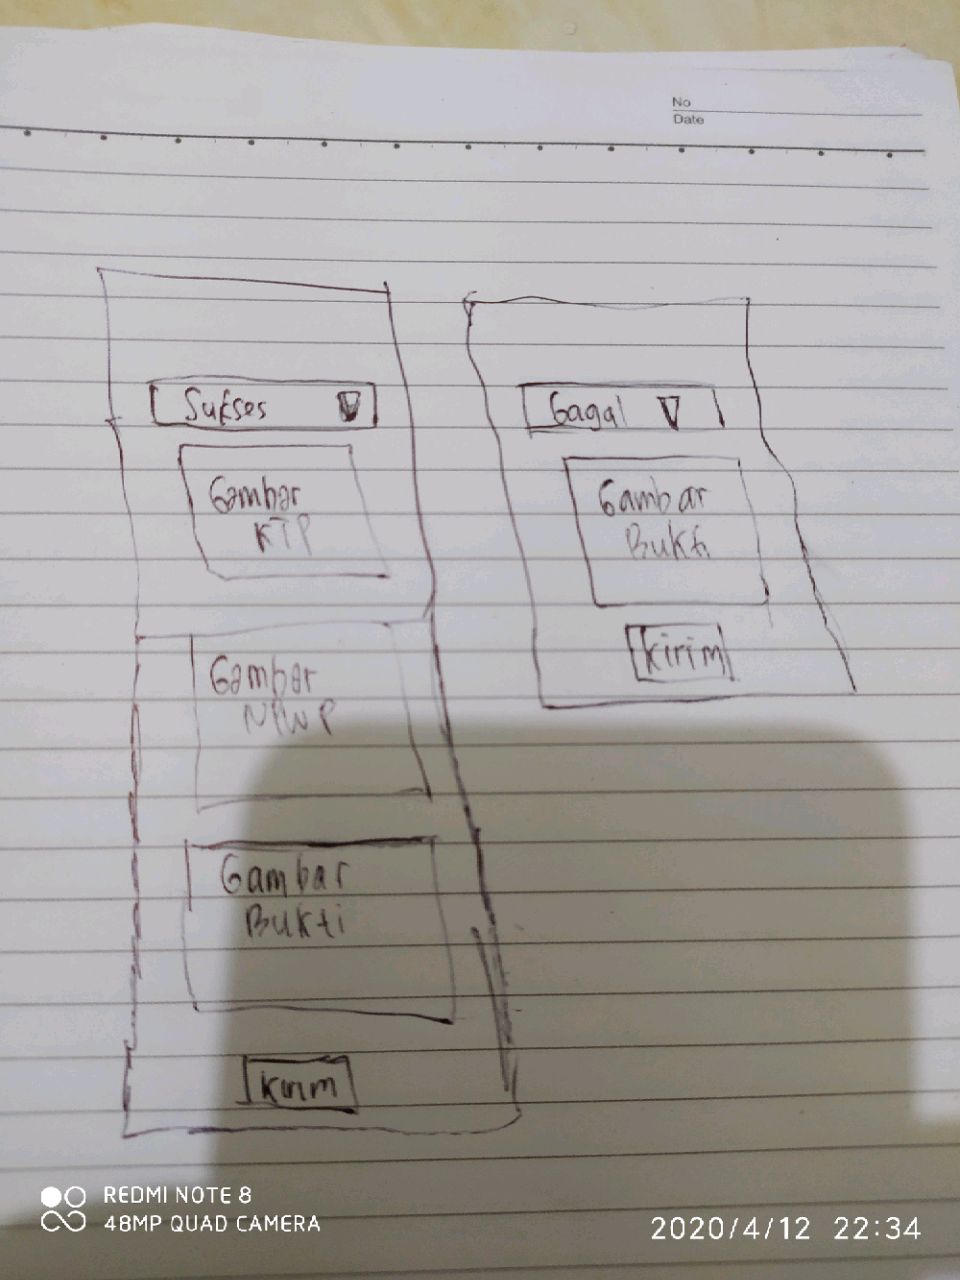 No
Date
Sukses
Gambar
KTP
Gambar
NPWP
Gambar
Bukti
Kirim
Gagal
Gambar
Bukti
Kirim
REDMI NOTE 8
48MP QUAD CAMERA
2020/4/12 22:34